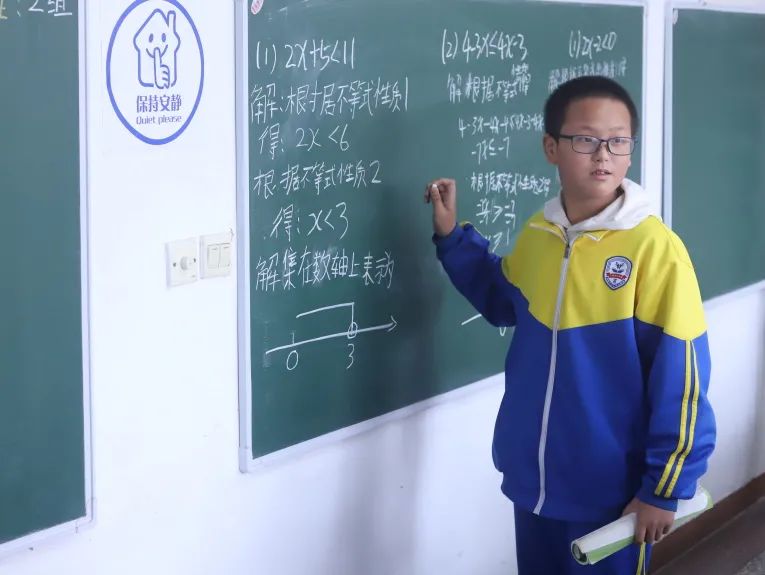 2组
保持安静
Quiet please
(1) 2x+5<11
解:根据不等式性质1
得: 2x<6
根据不等式性质2
得: x<3
解集在数轴上表示为
0 3
(2) 4-3x≤4x-3
解 根据不等式
-7x≤-7
根据不等式性质2得
(1) 2x-2<0